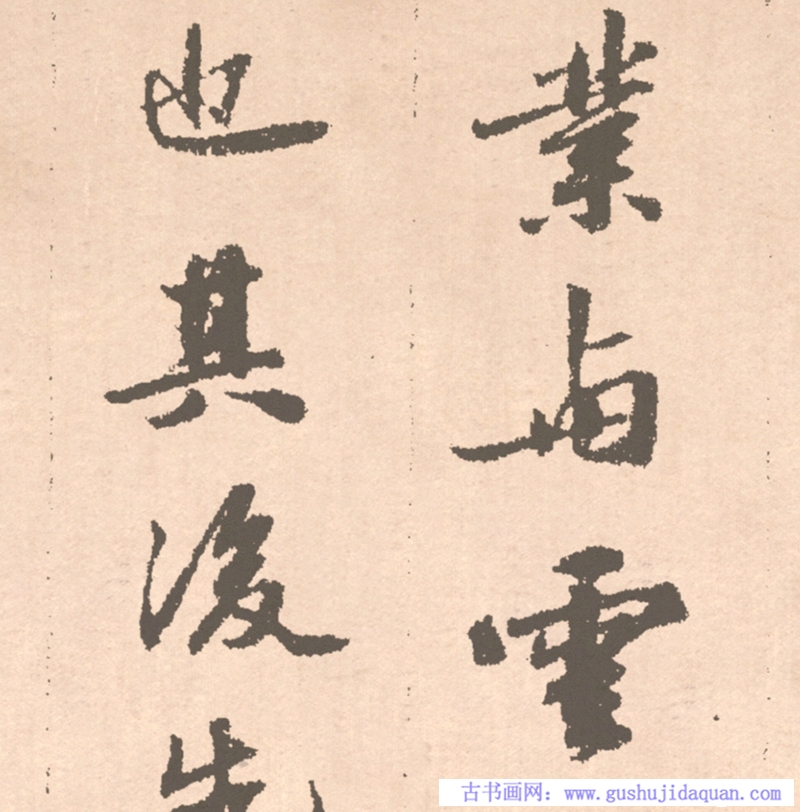 業与
也其後
古书画网：www.gushujidaquan.com